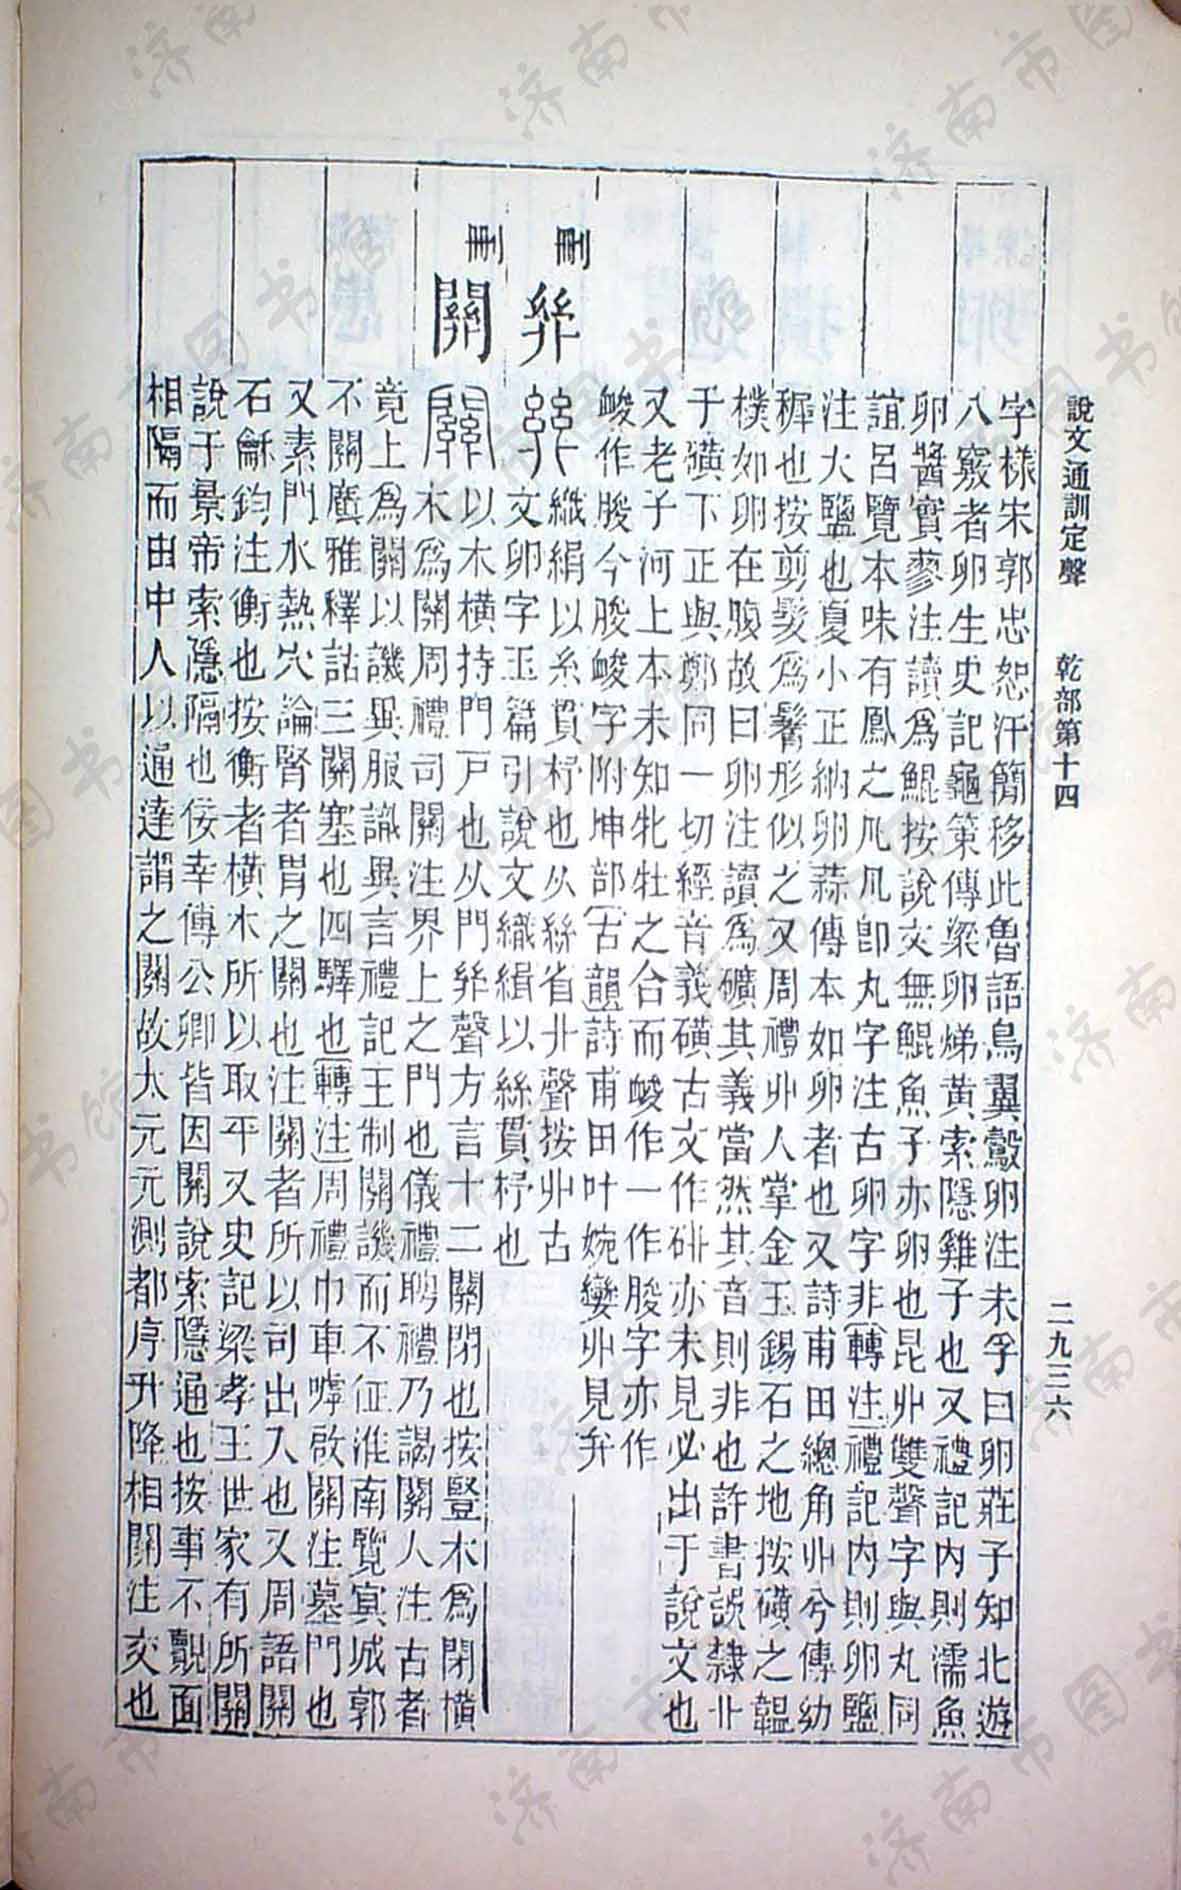 說文通訓定聲　乾部第十四　二九三六
字樣宋郭忠恕汗簡移此魯語鳥翼鷇卵注未孚曰卵莊子知北遊
八竅者卵生史記龜策傳梁卵㛮黃索隱雞子也又禮記內則濡魚
卵醬實蓼注讀爲鯤按說文無鯤魚子亦卵也昆丱雙聲字與丸同
誼呂覽本味有鳳之凡凡卽丸字注古卵字非轉注禮記內則卵鹽
注大鹽也夏小正納卵蒜傳本如卵者也又詩甫田總角丱兮傳幼
穉也按剪髮爲鬌形似之又周禮丱人掌金玉錫石之地按磺之韞
樸如卵在腹故曰卵注讀爲礦其義當然其音則非也許書誤隸丱
于磺下正與鄭同一切經音義磺古文作砿亦未見必出于說文也
又老子河上本未知牝牡之合而峻作一作朘字亦作
峻作朘今朘峻字附坤部古韻詩甫田叶婉孌丱見弁
𢇇　織絹以糸貫杼也从絲省丱聲按丱古
文卵字玉篇引說文織緝以絲貫杼也
關　以木橫持門戶也从門𢇇聲方言十二關閉也按豎木爲閉橫
木爲關周禮司關注界上之門也儀禮聘禮乃謁關人注古者
竟上爲關以譏異服識異言禮記王制關譏而不征淮南覽冥城郭
不關廣雅釋詁三關塞也四驛也轉注周禮巾車嘑啟關注墓門也
又素問水熱穴論腎者胃之關也注關者所以司出入也又周語關
石龢鈞注衡也按衡者橫木所以取平又史記梁孝王世家有所關
說于景帝索隱隔也佞幸傳公卿皆因關說索隱通也按事不覿面
相隔而由中人以通達謂之關故太元元測都序升降相關注交也